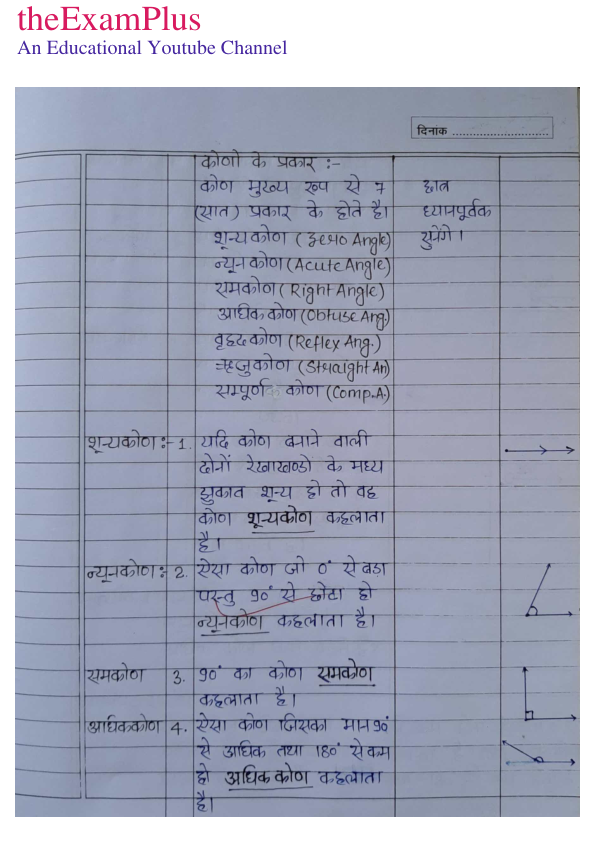 theExamPlus
An Educational Youtube Channel
दिनांक
कोणों के प्रकार :-
कोण मुख्य रूप से 7
(सात) प्रकार के होते है।
शून्यकोण (Zero Angle)
न्यून कोण (Acute Angle)
समकोण (Right Angle)
अधिक कोण (Obtuse Ang.)
वृहदकोण (Reflex Ang.)
ऋजुकोण (Straight An)
सम्पूर्णक कोण (Comp.A.)
छात्र
ध्यानपूर्वक
सुनेंगे।
शून्यकोण :- 1. यदि कोण बनाने वाली
दोनों रेखाखण्डों के मध्य
झुकाव शून्य हो तो वह
कोण शून्यकोण कहलाता
है।
न्यूनकोण :- 2. ऐसा कोण जो 0° से बड़ा
परन्तु 90° से छोटा हो
न्यूनकोण कहलाता है।
समकोण 3. 90° का कोण समकोण
कहलाता है।
अधिककोण 4. ऐसा कोण जिसका माप 90°
से अधिक तथा 180° से कम
हो अधिक कोण कहलाता
है।